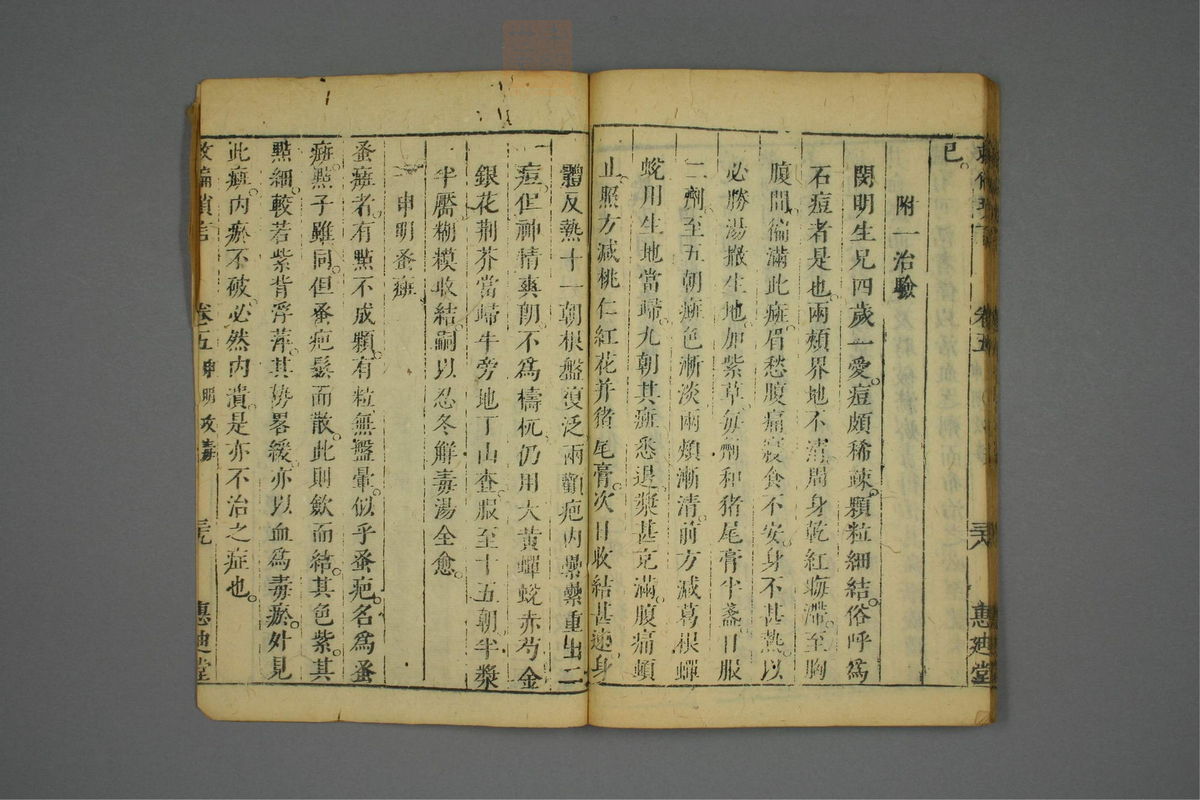 卷五
三十八
惠迪堂
已
附一治驗
閔明生兄四歲一愛痘頗稀疎顆粒細結俗呼為
石痘者是也兩頰界地不清周身乾紅晦滯至胸
腹間徧滿此癍眉愁腹痛寢食不安身不甚熱以
必勝湯撤生地加紫草每劑和猪尾膏半盞日服
二劑至五朝癍色漸淡兩頰漸清前方減葛根蟬
蛻用生地當歸九朝其癍悉退漿甚充滿腹痛頓
止照方減桃仁紅花并猪尾膏次日收結甚速身
體反熱十一朝根盤復泛兩顴疤內纍纍重出二
痘但神情爽朗不為檮杌仍用大黃蟬蛻赤芍金
銀花荆芥當歸牛旁地丁山查服至十五朝半漿
半靨糊糢收結嗣以忍冬解毒湯全愈
申明蚤癍
蚤癍者有點不成顆有粒無盤暈似乎蚤疤名為蚤
癍點子雖同但蚤疤鬆而散此則歛而結其色紫其
點細較若紫背浮萍其勢畧緩亦以血為毒瘀外見
此癍內瘀不破必然內潰是亦不治之症也
救偏瑣言
卷五
申明放毒
三十九
惠迪堂